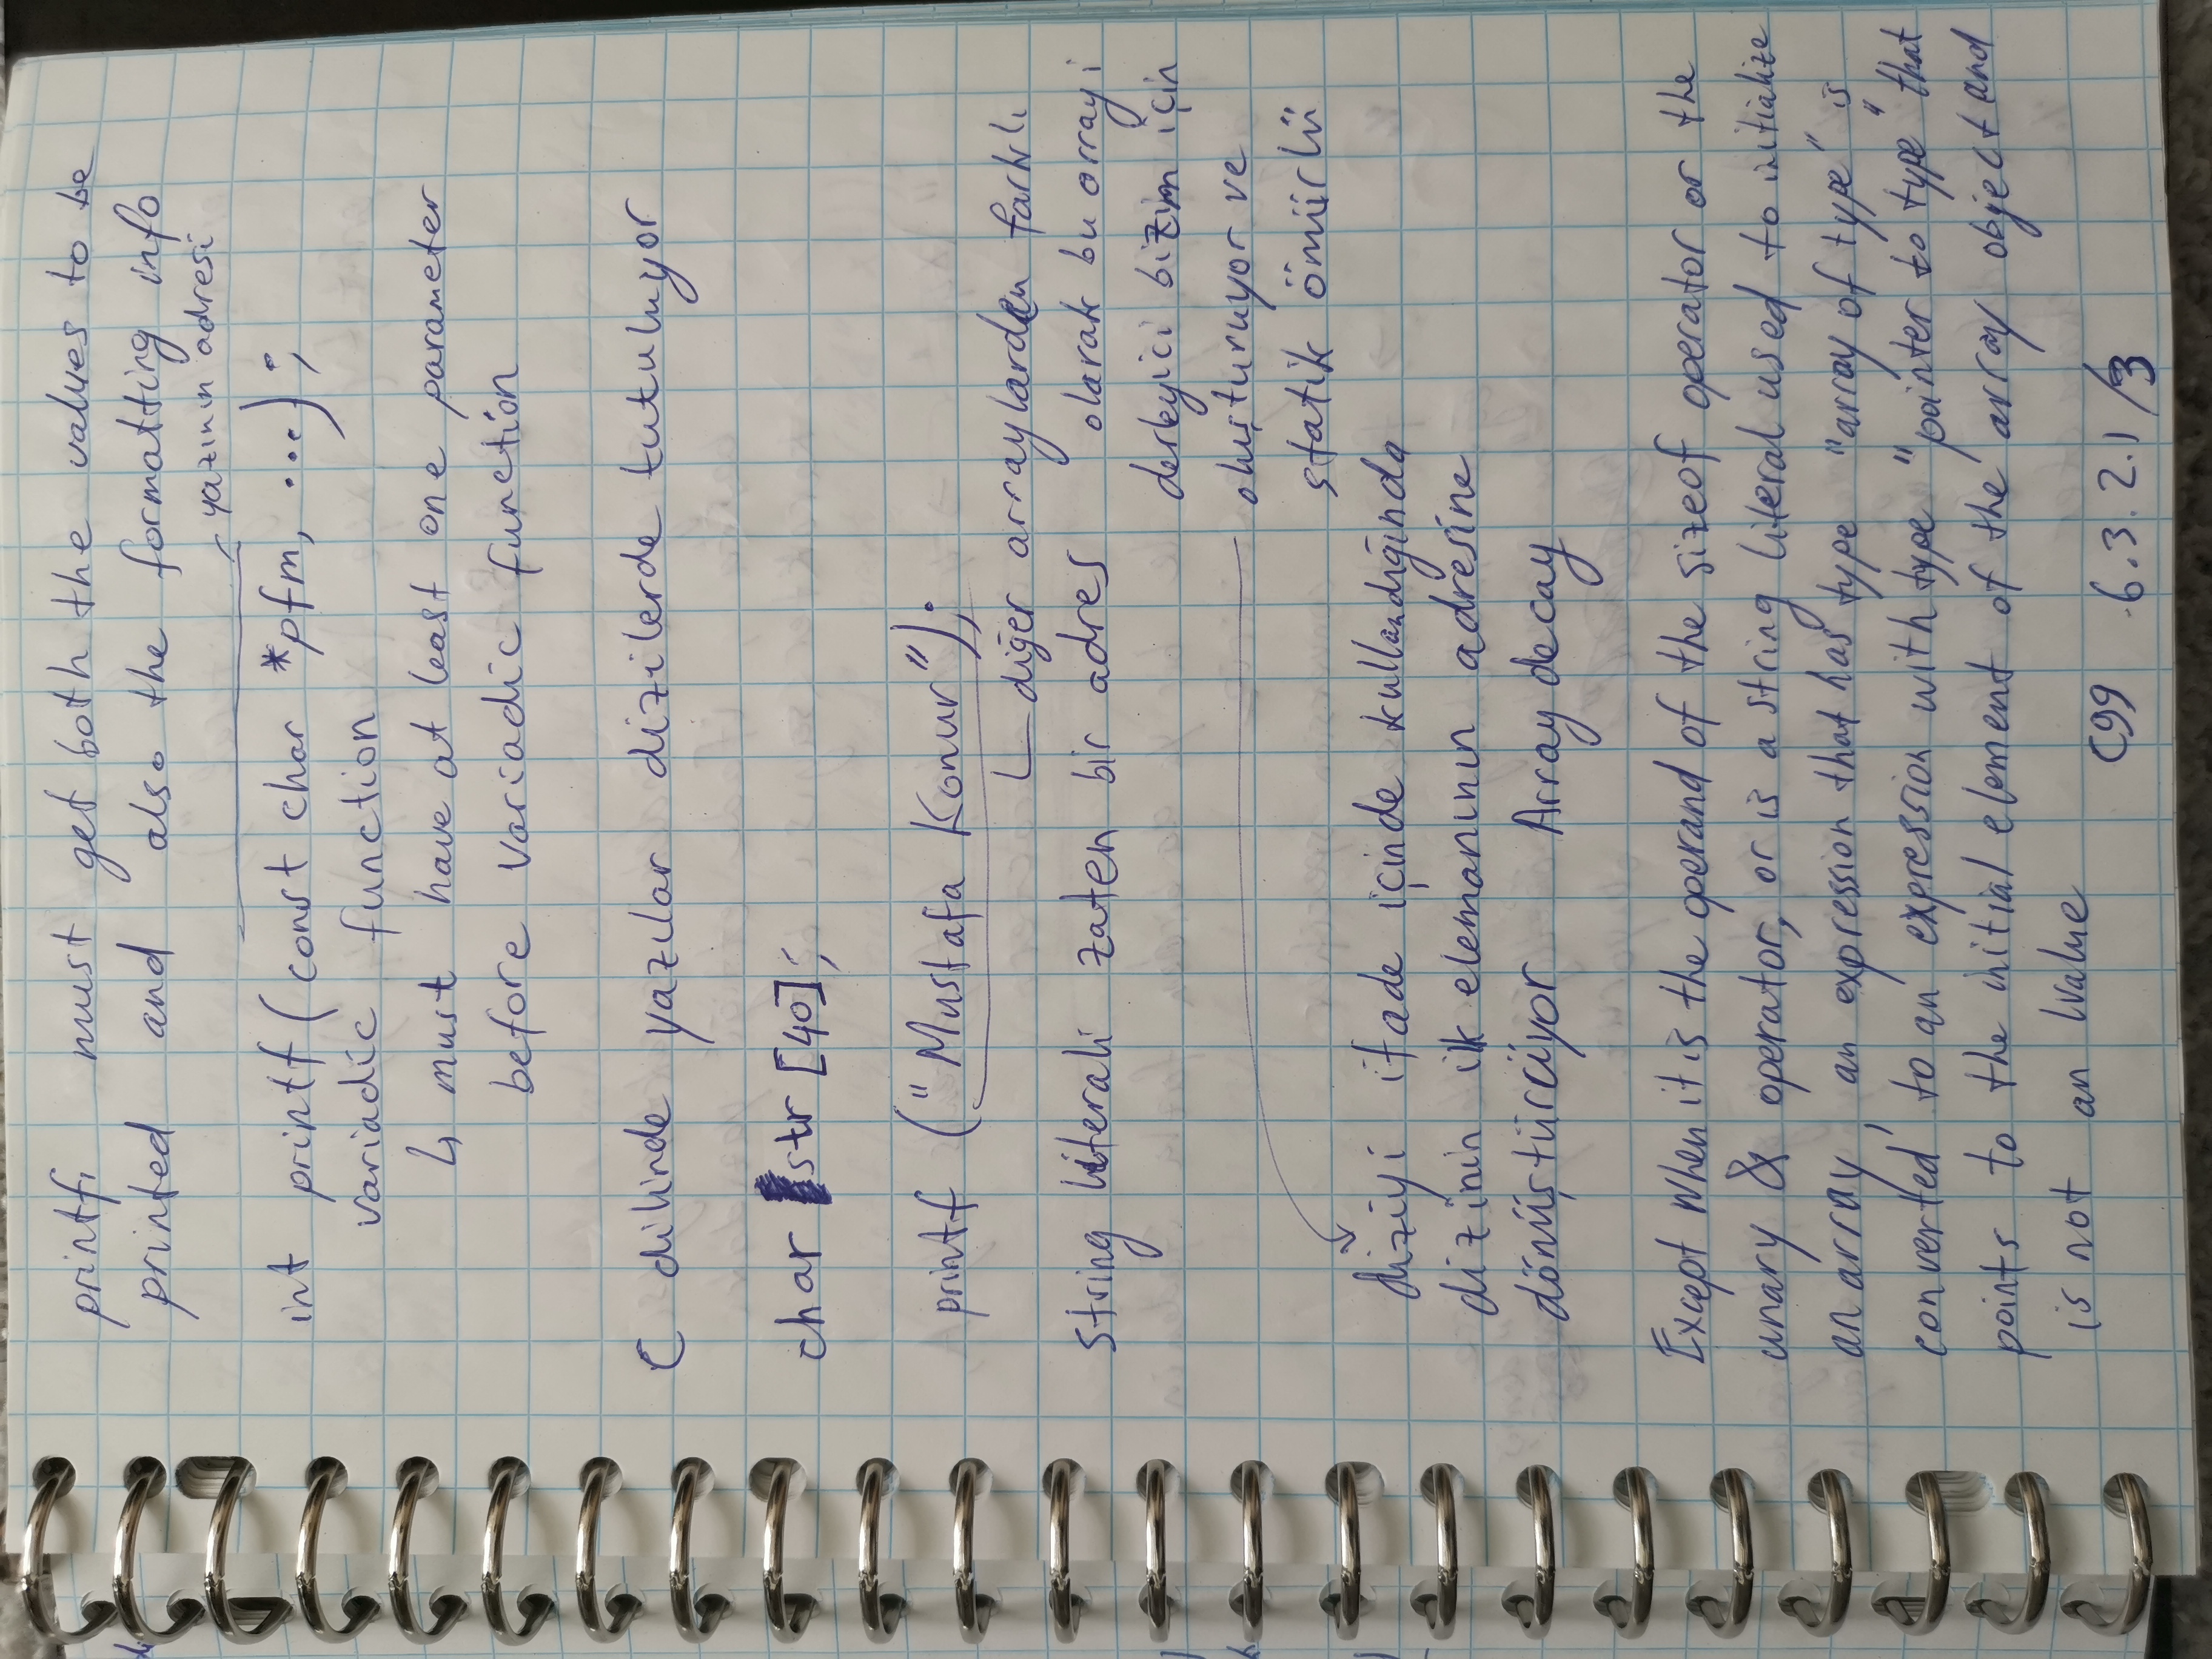 printf, must get both the values to be
printed and also the formatting info
yazının adresi
int printf (const char *pfm, ...);
variadic function
↳ must have at least one parameter
before variadic function
C dilinde yazılar dizilerde tutuluyor
char str [40];
printf ("Mustafa Konur");
diğer arraylarden farklı
string literali zaten bir adres olarak bu arrayi
derleyici bizim için
oluşturuyor ve
statik ömürlü
diziyi ifade içinde kullandığında
dizinin ilk elemanının adresine
dönüştürüyor Array decay
Except when it is the operand of the sizeof operator or the
unary & operator, or is a string literal used to initialize
an array, an expression that has type "array of type" is
converted to an expression with type "pointer to type" that
points to the initial element of the array object and
is not an lvalue
C99 6.3.2.1/3